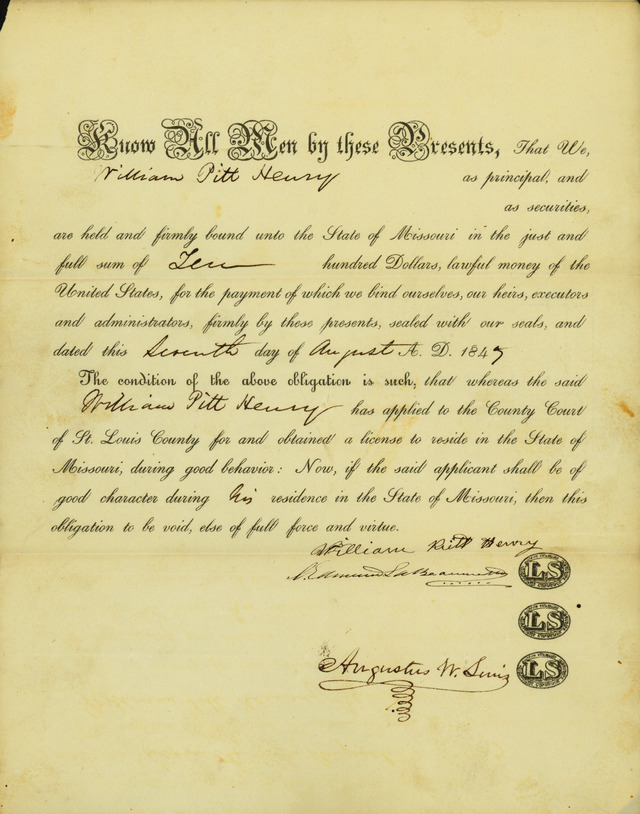 Know All Men by these Presents, That We,
William Pitt Henry as principal, and
as securities,
are held and firmly bound unto the State of Missouri in the just and
full sum of Ten hundred Dollars, lawful money of the
United States, for the payment of which we bind ourselves, our heirs, executors
and administrators, firmly by these presents, sealed with our seals, and
dated this Seventh day of August A. D. 184
The condition of the above obligation is such, that whereas the said
William Pitt Henry has applied to the County Court
of St. Louis County for and obtained a license to reside in the State of
Missouri, during good behavior: Now, if the said applicant shall be of
good character during his residence in the State of Missouri, then this
obligation to be void, else of full force and virtue.
William Pitt Henry
LS
LS
Augustus W. LS